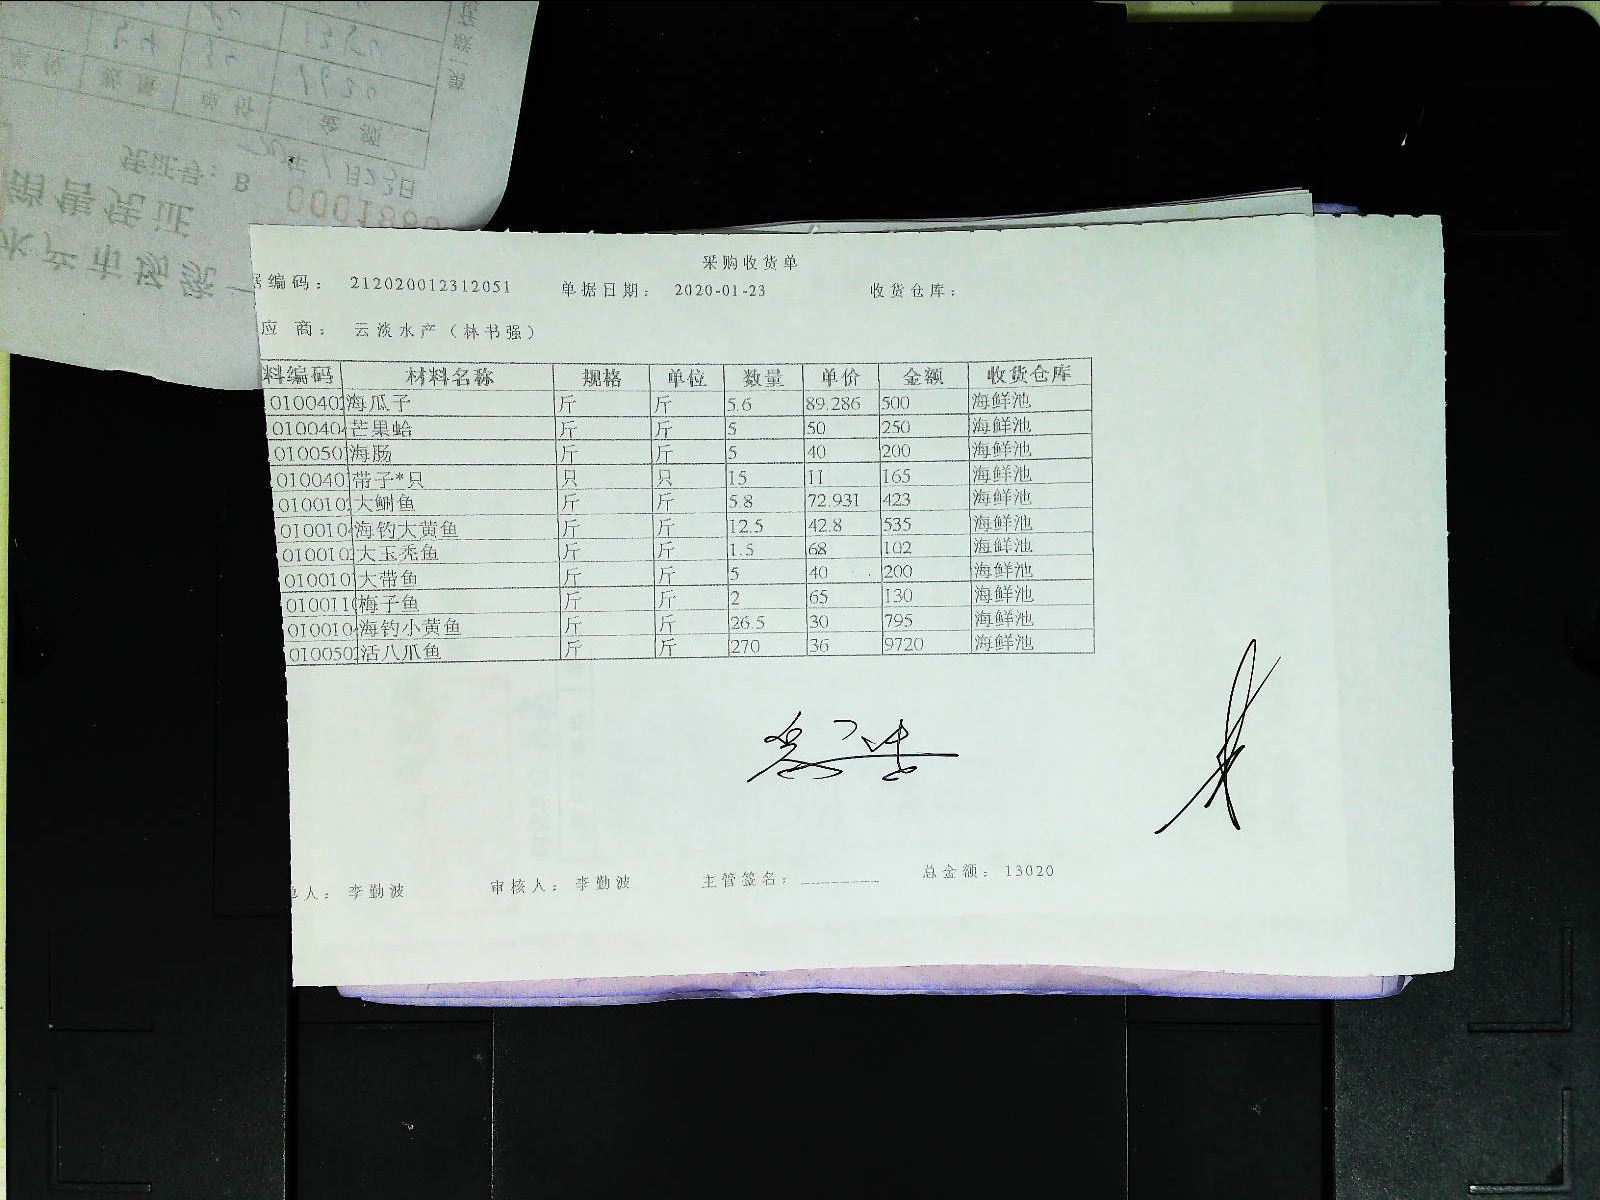 采购收货单
据编码： 212020012312051 单据日期： 2020-01-23 收货仓库：
应 商： 云淡水产（林书强）
料编码 材料名称 规格 单位 数量 单价 金额 收货仓库
010040 海瓜子 斤 斤 5.6 89.286 500 海鲜池
010040 芒果蛤 斤 斤 5 50 250 海鲜池
010050 海肠 斤 斤 5 40 200 海鲜池
010040 带子*只 只 只 15 11 165 海鲜池
010010 大鮰鱼 斤 斤 5.8 72.931 423 海鲜池
010010 海钓大黄鱼 斤 斤 12.5 42.8 535 海鲜池
010010 大玉秃鱼 斤 斤 1.5 68 102 海鲜池
010010 大带鱼 斤 斤 5 40 200 海鲜池
010011 梅子鱼 斤 斤 2 65 130 海鲜池
010010 海钓小黄鱼 斤 斤 26.5 30 795 海鲜池
010050 活八爪鱼 斤 斤 270 36 9720 海鲜池
单人： 李勤波 审核人： 李勤波 主管签名： 总金额： 13020
水产市场统一
销售凭证
凭证号： B 000188
年1月23日
单位 数量 单价 金额
第一联